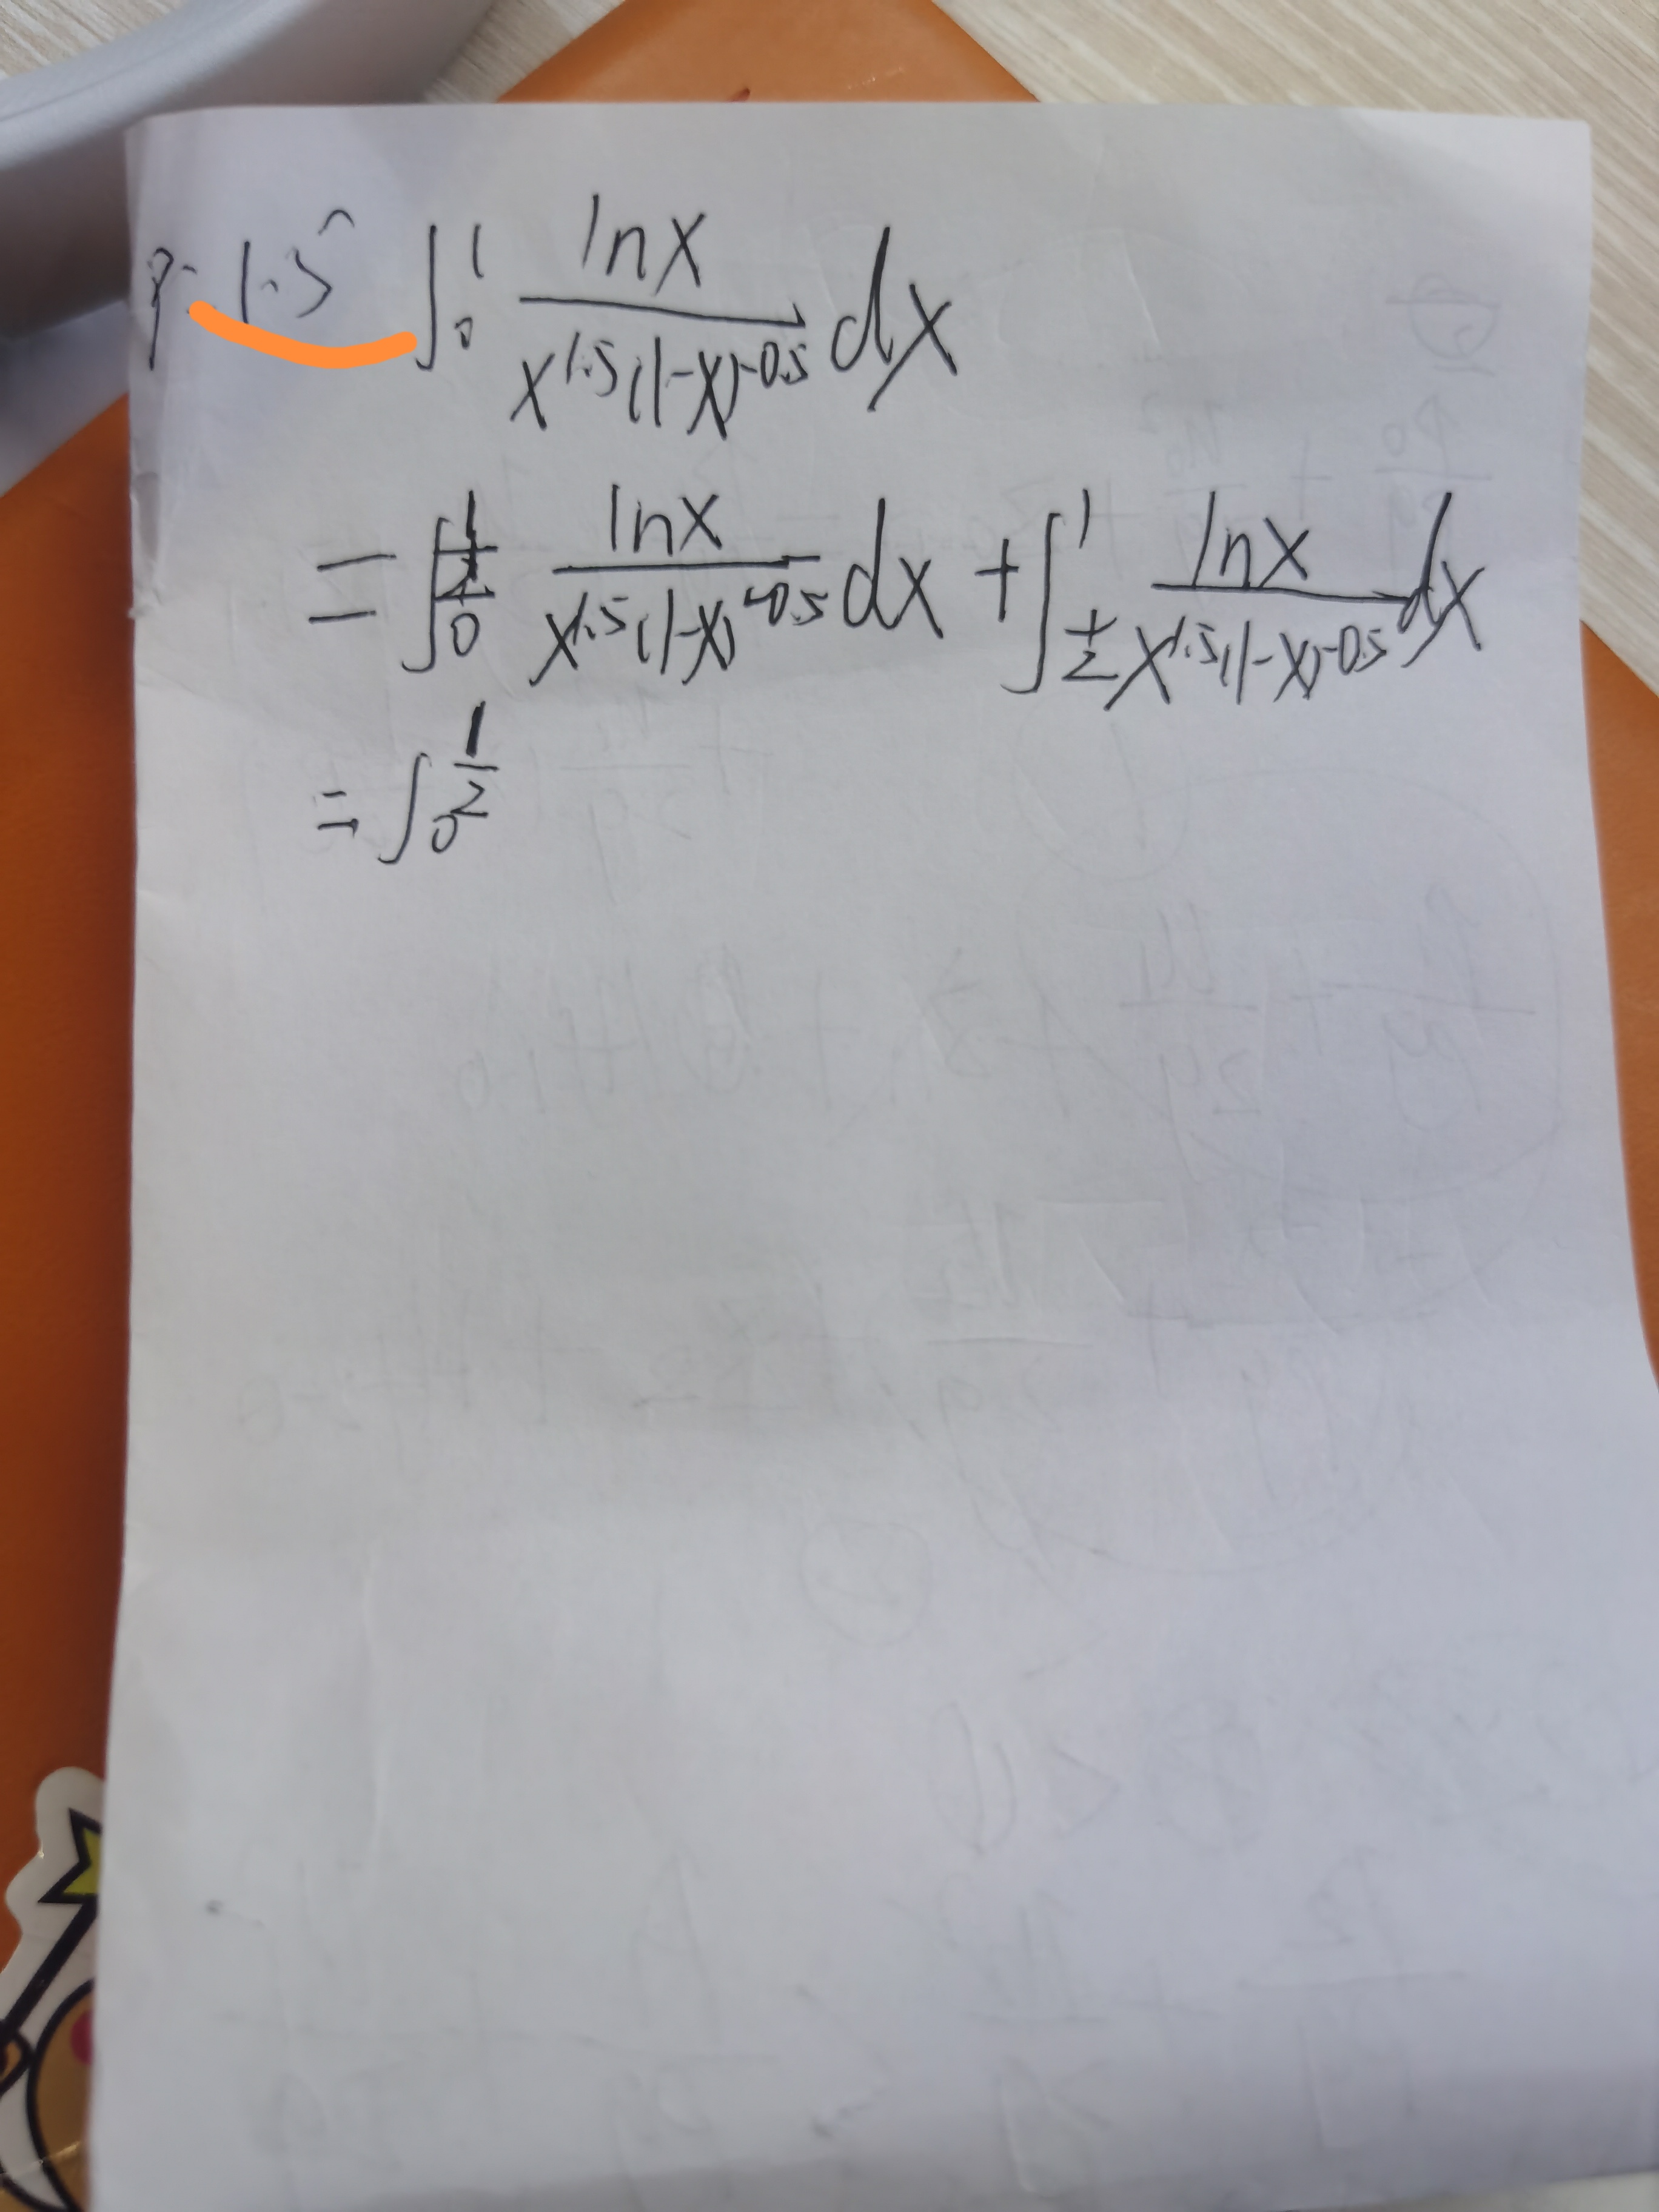 p=1.5 ∫₀¹ lnx / x^1.5(1-x)^-0.5 dx
= ∫₀^½ lnx / x^1.5(1-x)^-0.5 dx + ∫_½^1 lnx / x^1.5(1-x)^-0.5 dx
= ∫₀^½